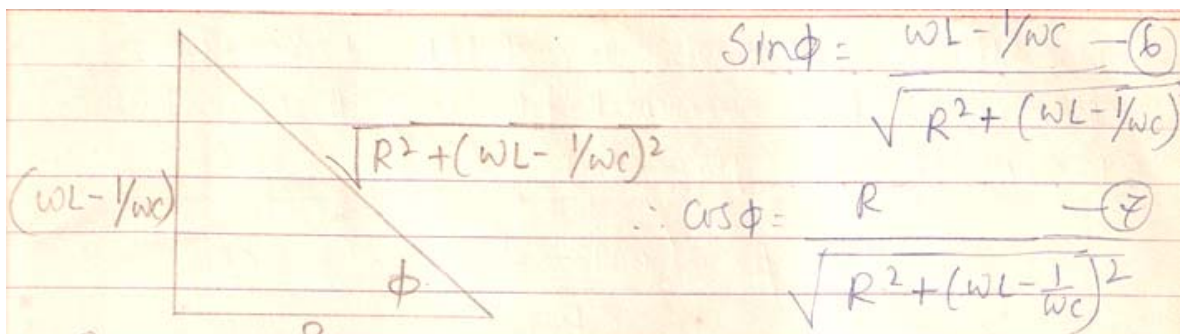 Sinϕ = (ωL - 1/ωC) / √(R² + (ωL - 1/ωC) —(6)
√R² + (ωL - 1/ωC)²
(ωL - 1/ωC)
∴ cosϕ = R / √(R² + (ωL - 1/ωC)²) —(7)
ϕ